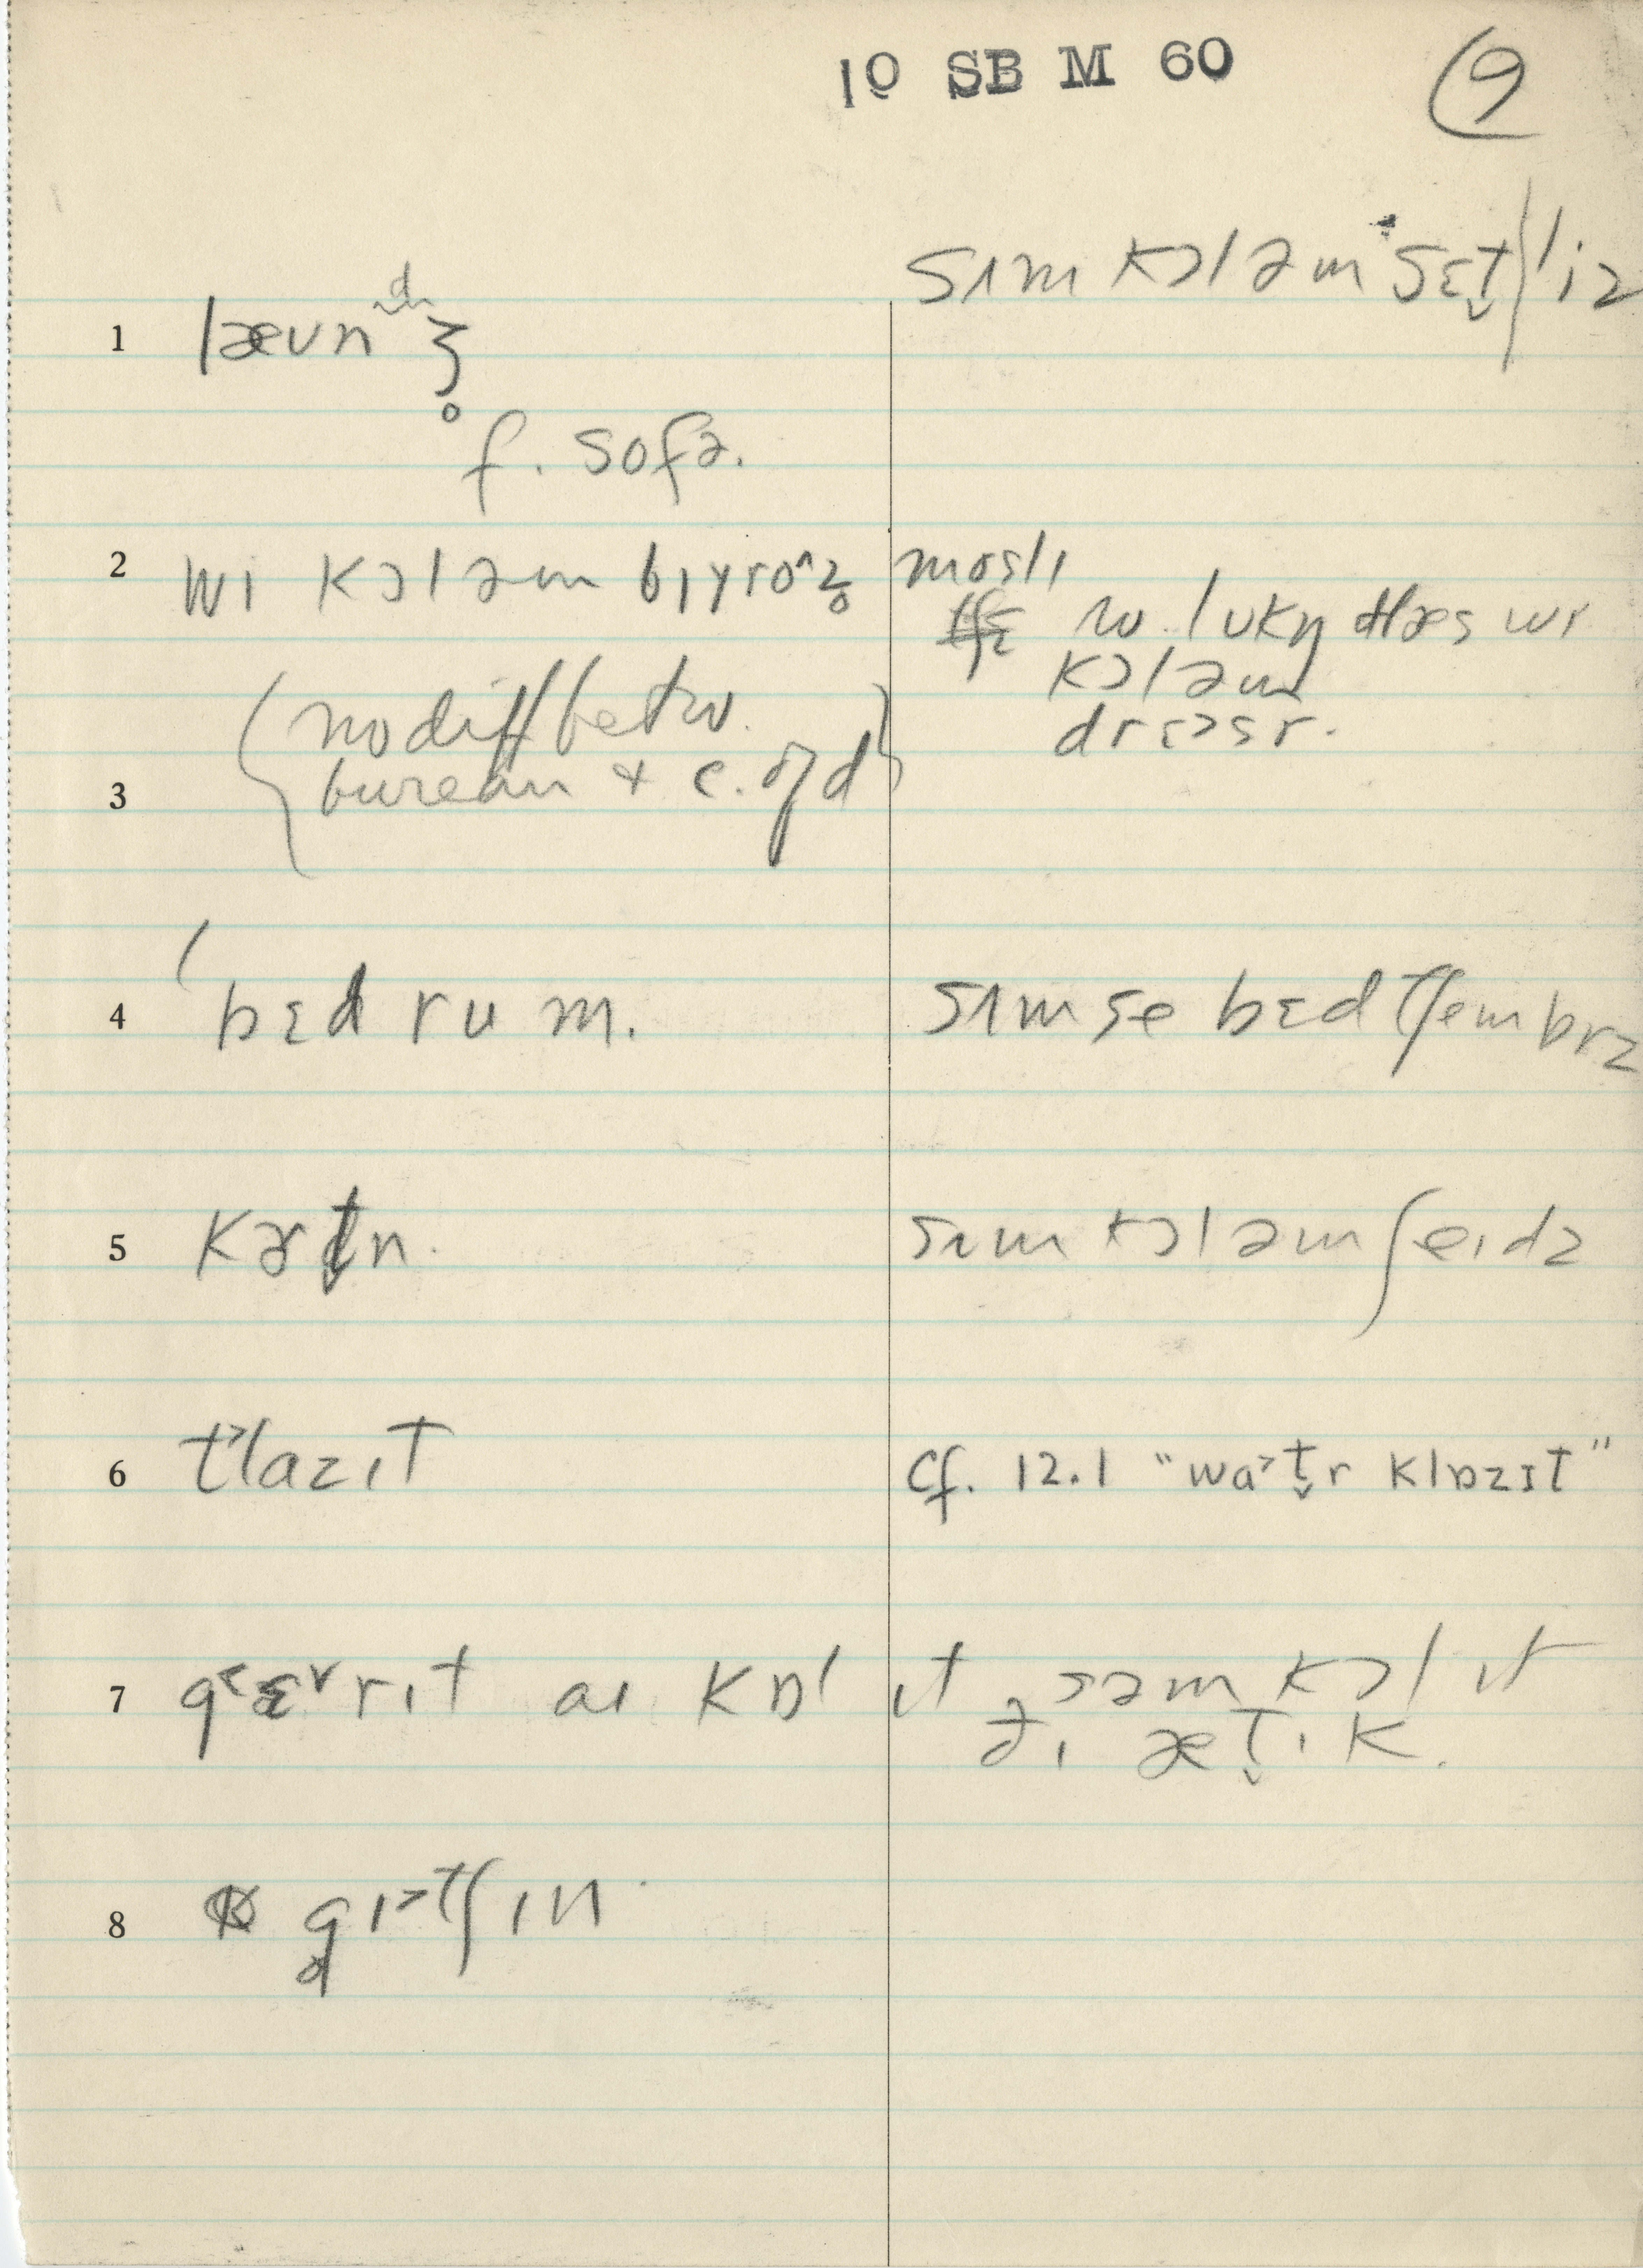 10 SB M 60 9
sɪm kɔləm sɛt̬|liz
1 læʊnᵈʒ̥
f. sofə.
2 wi kɔləm bɪyro^z̥ moslɪ
w. lʊkɪŋ
kɔləm
drɛɔsr.
(no diff betw.
3 bureau + c. of d)
4 bɛd rum. sɪm se bɛdtʃembrz
5 kɝtn. sɪm kɔləm ʃeɪdz
6 t˃lazɪt cf. 12.1 "wa˃t̬r klɒzɪt"
7 g˂ɛ˅rɪt aɪ kɒl ɪt səm kɔl ɪt
ðɪ æt̬ɪk.
8 gɪ˃tʃɪn